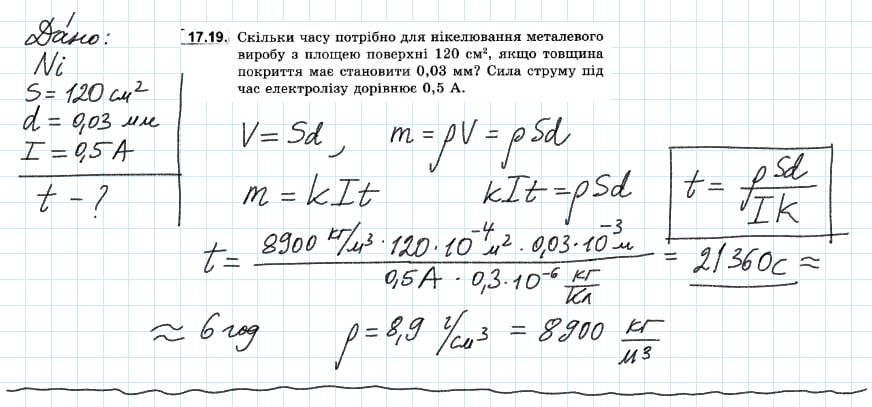 Дано:
Ni
S = 120 см²
d = 0,03 мм
I = 0,5 А
t - ?
17.19. Скільки часу потрібно для нікелювання металевого
виробу з площею поверхні 120 см², якщо товщина
покриття має становити 0,03 мм? Сила струму під
час електролізу дорівнює 0,5 А.
V = Sd, m = ρV = ρSd
m = kIt kIt = ρSd t = ρSd / Ik
t = 8900 кг/м³ · 120 · 10⁻⁴ м² · 0,03 · 10⁻³ м / 0,5 А · 0,3 · 10⁻⁶ кг/Кл = 21360 с ≈
≈ 6 год ρ = 8,9 г/см³ = 8900 кг/м³